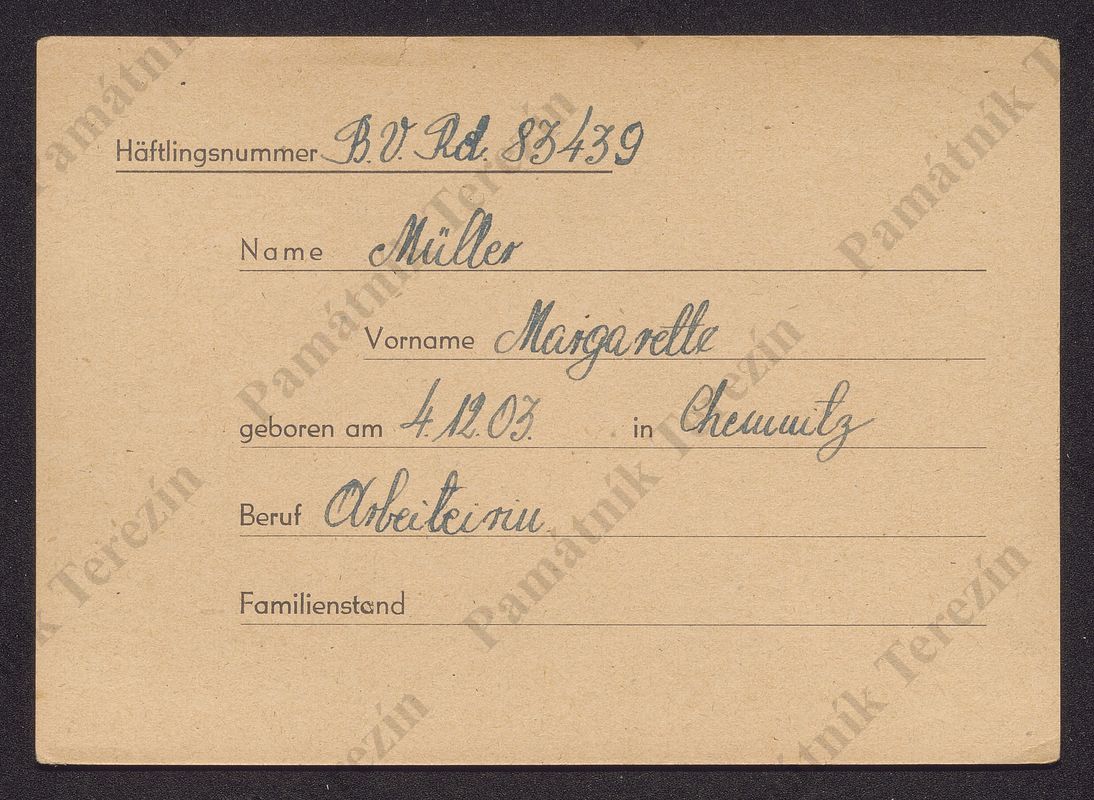 Häftlingsnummer B.V. Rd. 83439
Name Müller
Vorname Margarette
geboren am 4.12.03. in Chemnitz
Beruf Arbeiteirin
Familienstand
Památník Terezín